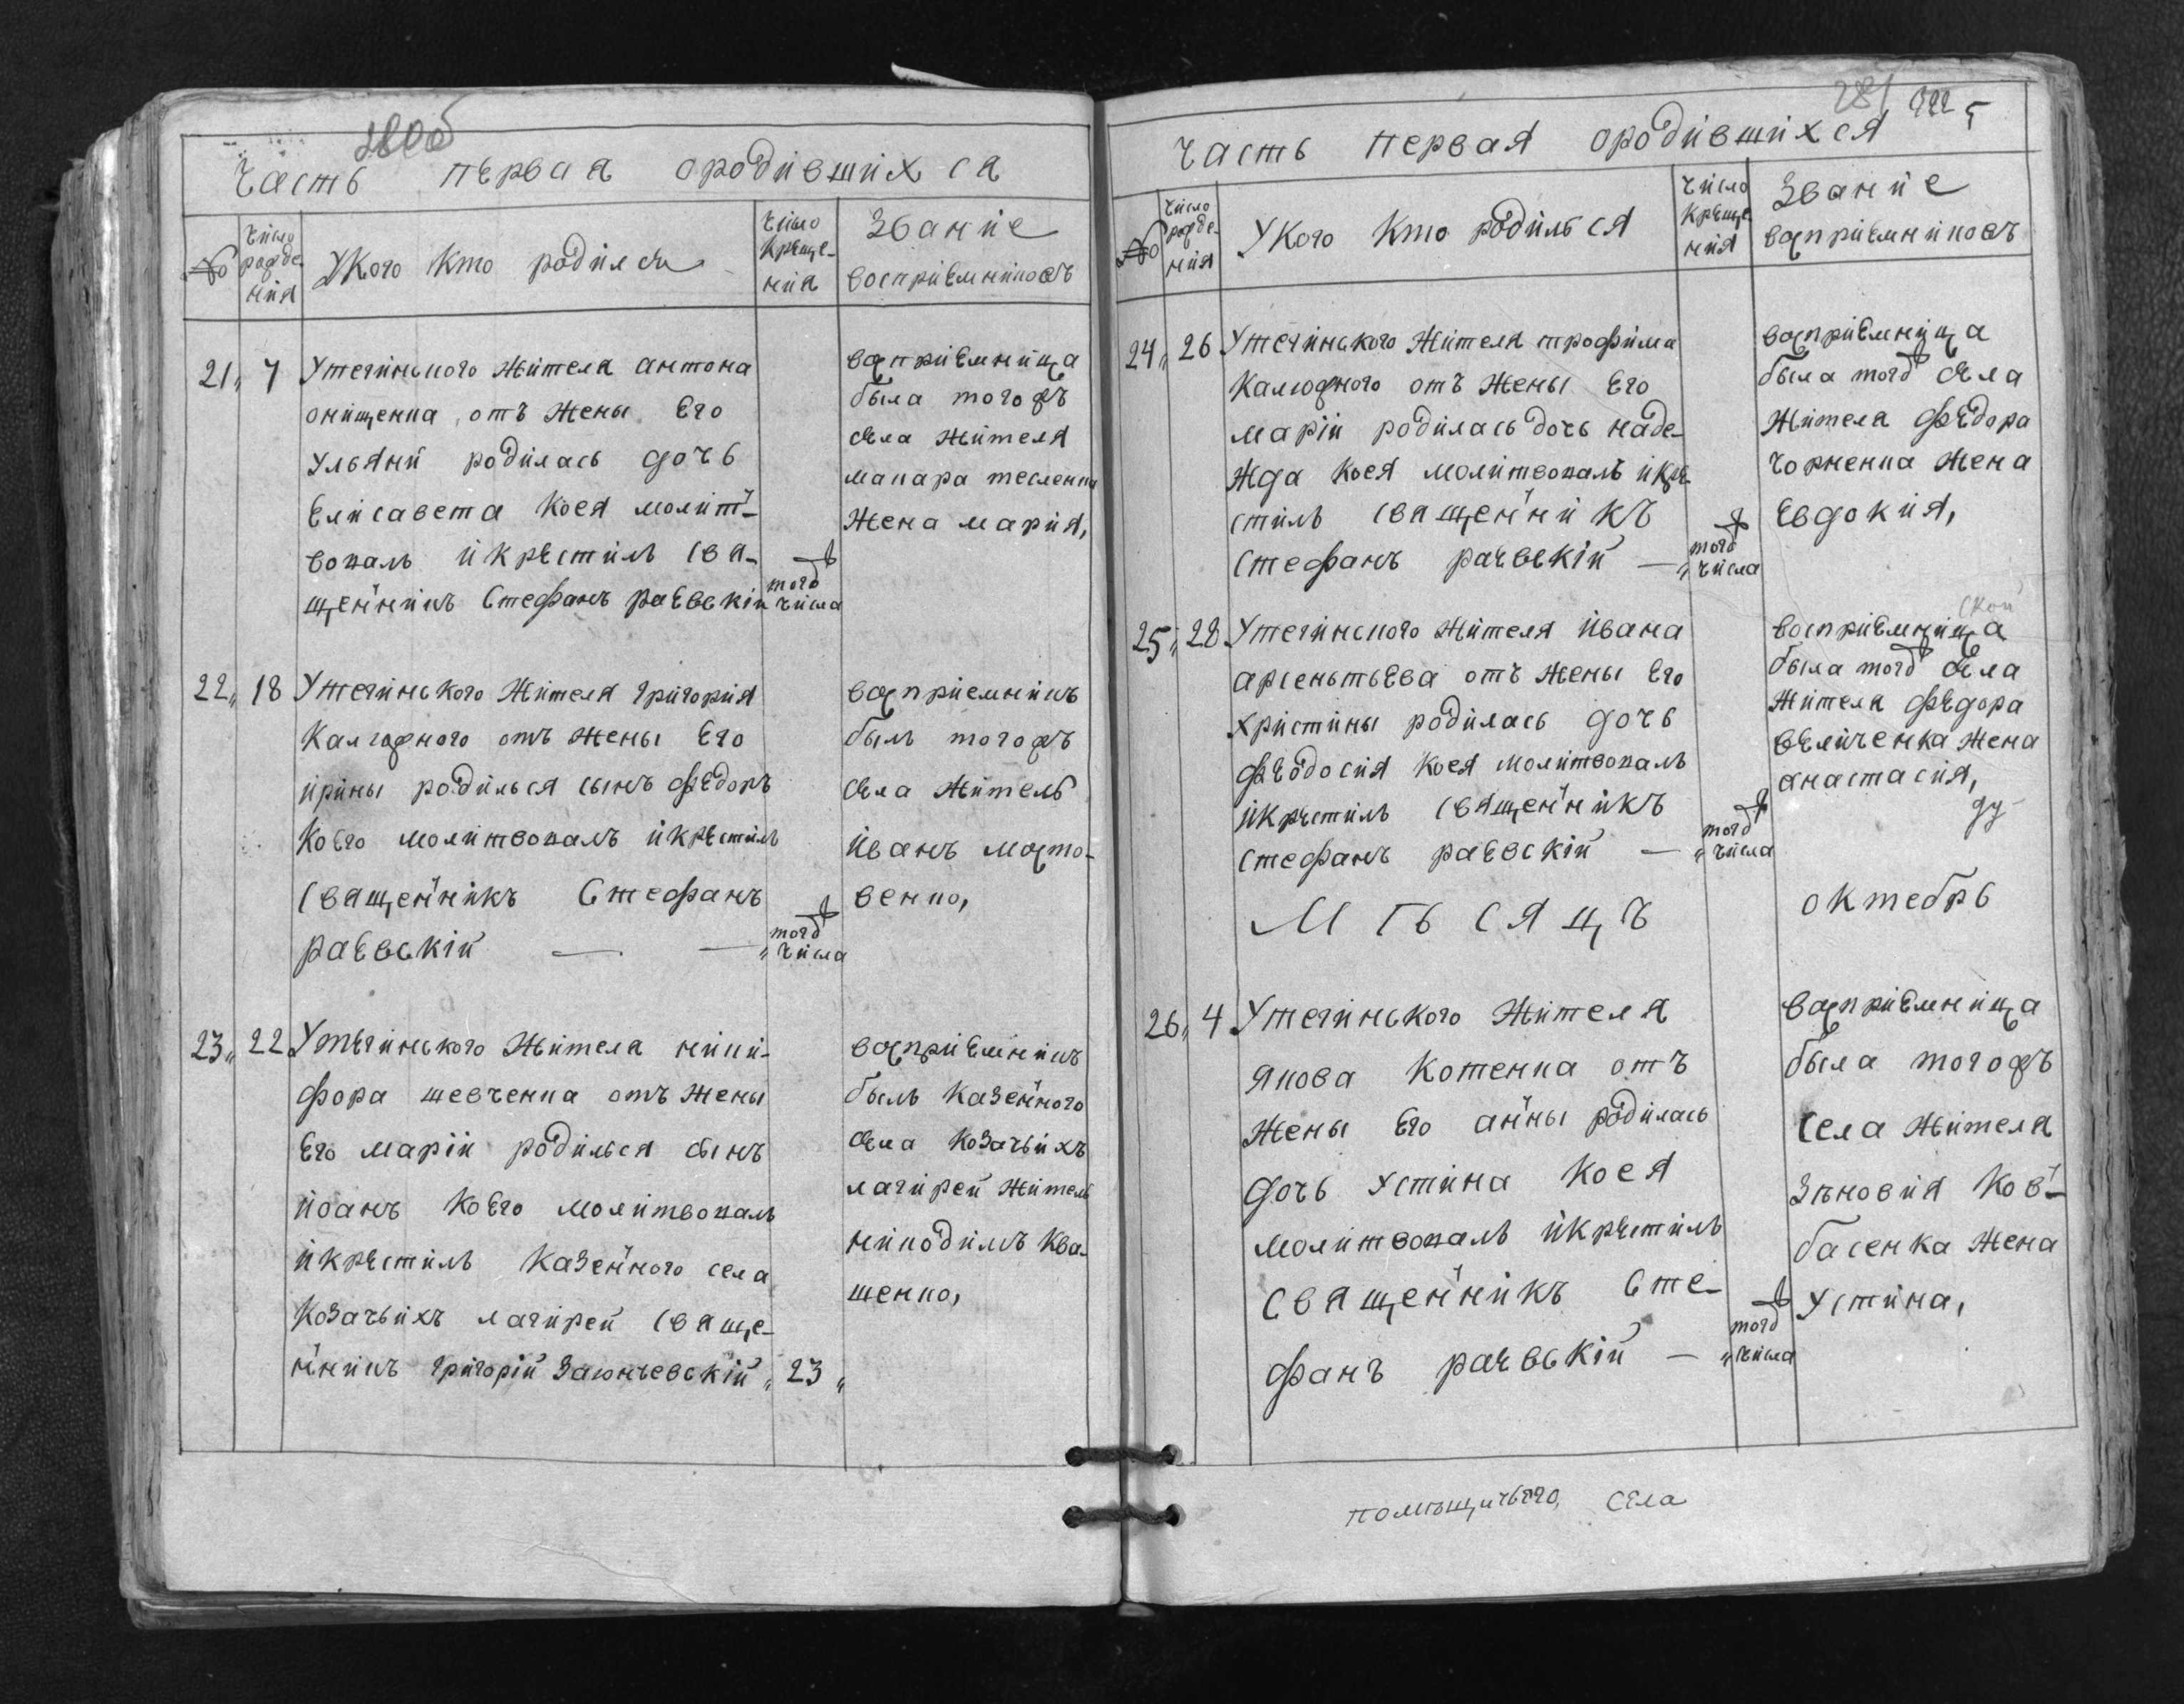 280об
Часть пѣрвая ородившихся
№
число рожденїя
Укого кто родилсѧ
число крещенїя
Званїе восприемниковъ
21,, 7
Утегинского жителя антона
онищенка, отъ жены Его
ульяни родилась дочь
Елисавета коея молит-
вовалъ икрестилъ свя-
щенникъ Стефанъ раевскій
тогож числа
восприемница
была тогожъ
села жителя
макара тесленка
жена марїя,
22,, 18
Утегинского жителя григорїя
Калюжного отъ жены Его
ирины родилься сынъ федоръ
коего молитвовалъ икрестилъ
священникъ Стефанъ
раевскій
тогож „ числа
восприемникъ
былъ тогожъ
села житель
Иванъ мосто-
венко,
23,, 22
Утегинского жителя ники-
фора шевченка отъ жены
Его марїи родилься сынъ
иоанъ коего молитвовалъ
икрестилъ казенного села
козачьихъ лагирей свяще-
нникъ григорій Заюнчевскій
„ 23 „
восприемникъ
былъ казенного
села козачьихъ
лагирей житель
никодимъ ква-
шенко,
281 5
Часть первая ородившихся
№
число рожденїя
Укого кто родилься
число крещенїя
Званїе восприемниковъ
24,, 26
Утегинского жителя трофима
Калюжного отъ жены Его
марїи родилась дочь наде-
жда коея молитвовалъ икре-
стилъ священникъ
Стефанъ раевскій
тогож „ числа
восприемница
была тогож села
жителя федора
чорненка жена
Евдокия,
25,, 28
Утегинского жителя ивана
арсеньтьева отъ жены Его
христины родилась дочь
феодосия коея молитвовалъ
икрестилъ священникъ
стефанъ раевскій
тогож „ числа
восприемница
была тогож села
жителя федора
величенка жена
анастасия,
Мѣсяцъ октебрь
26,, 4
Утегинського жителя
якова котенка отъ
жены Его анны родилась
дочь устина коея
молитвовалъ икрестилъ
священникъ Сте-
фанъ раевскій
тогож „ числа
восприемница
была тогожъ
села жителя
зѣновия ков-
басенка жена
устина,
помѣщичьего, села